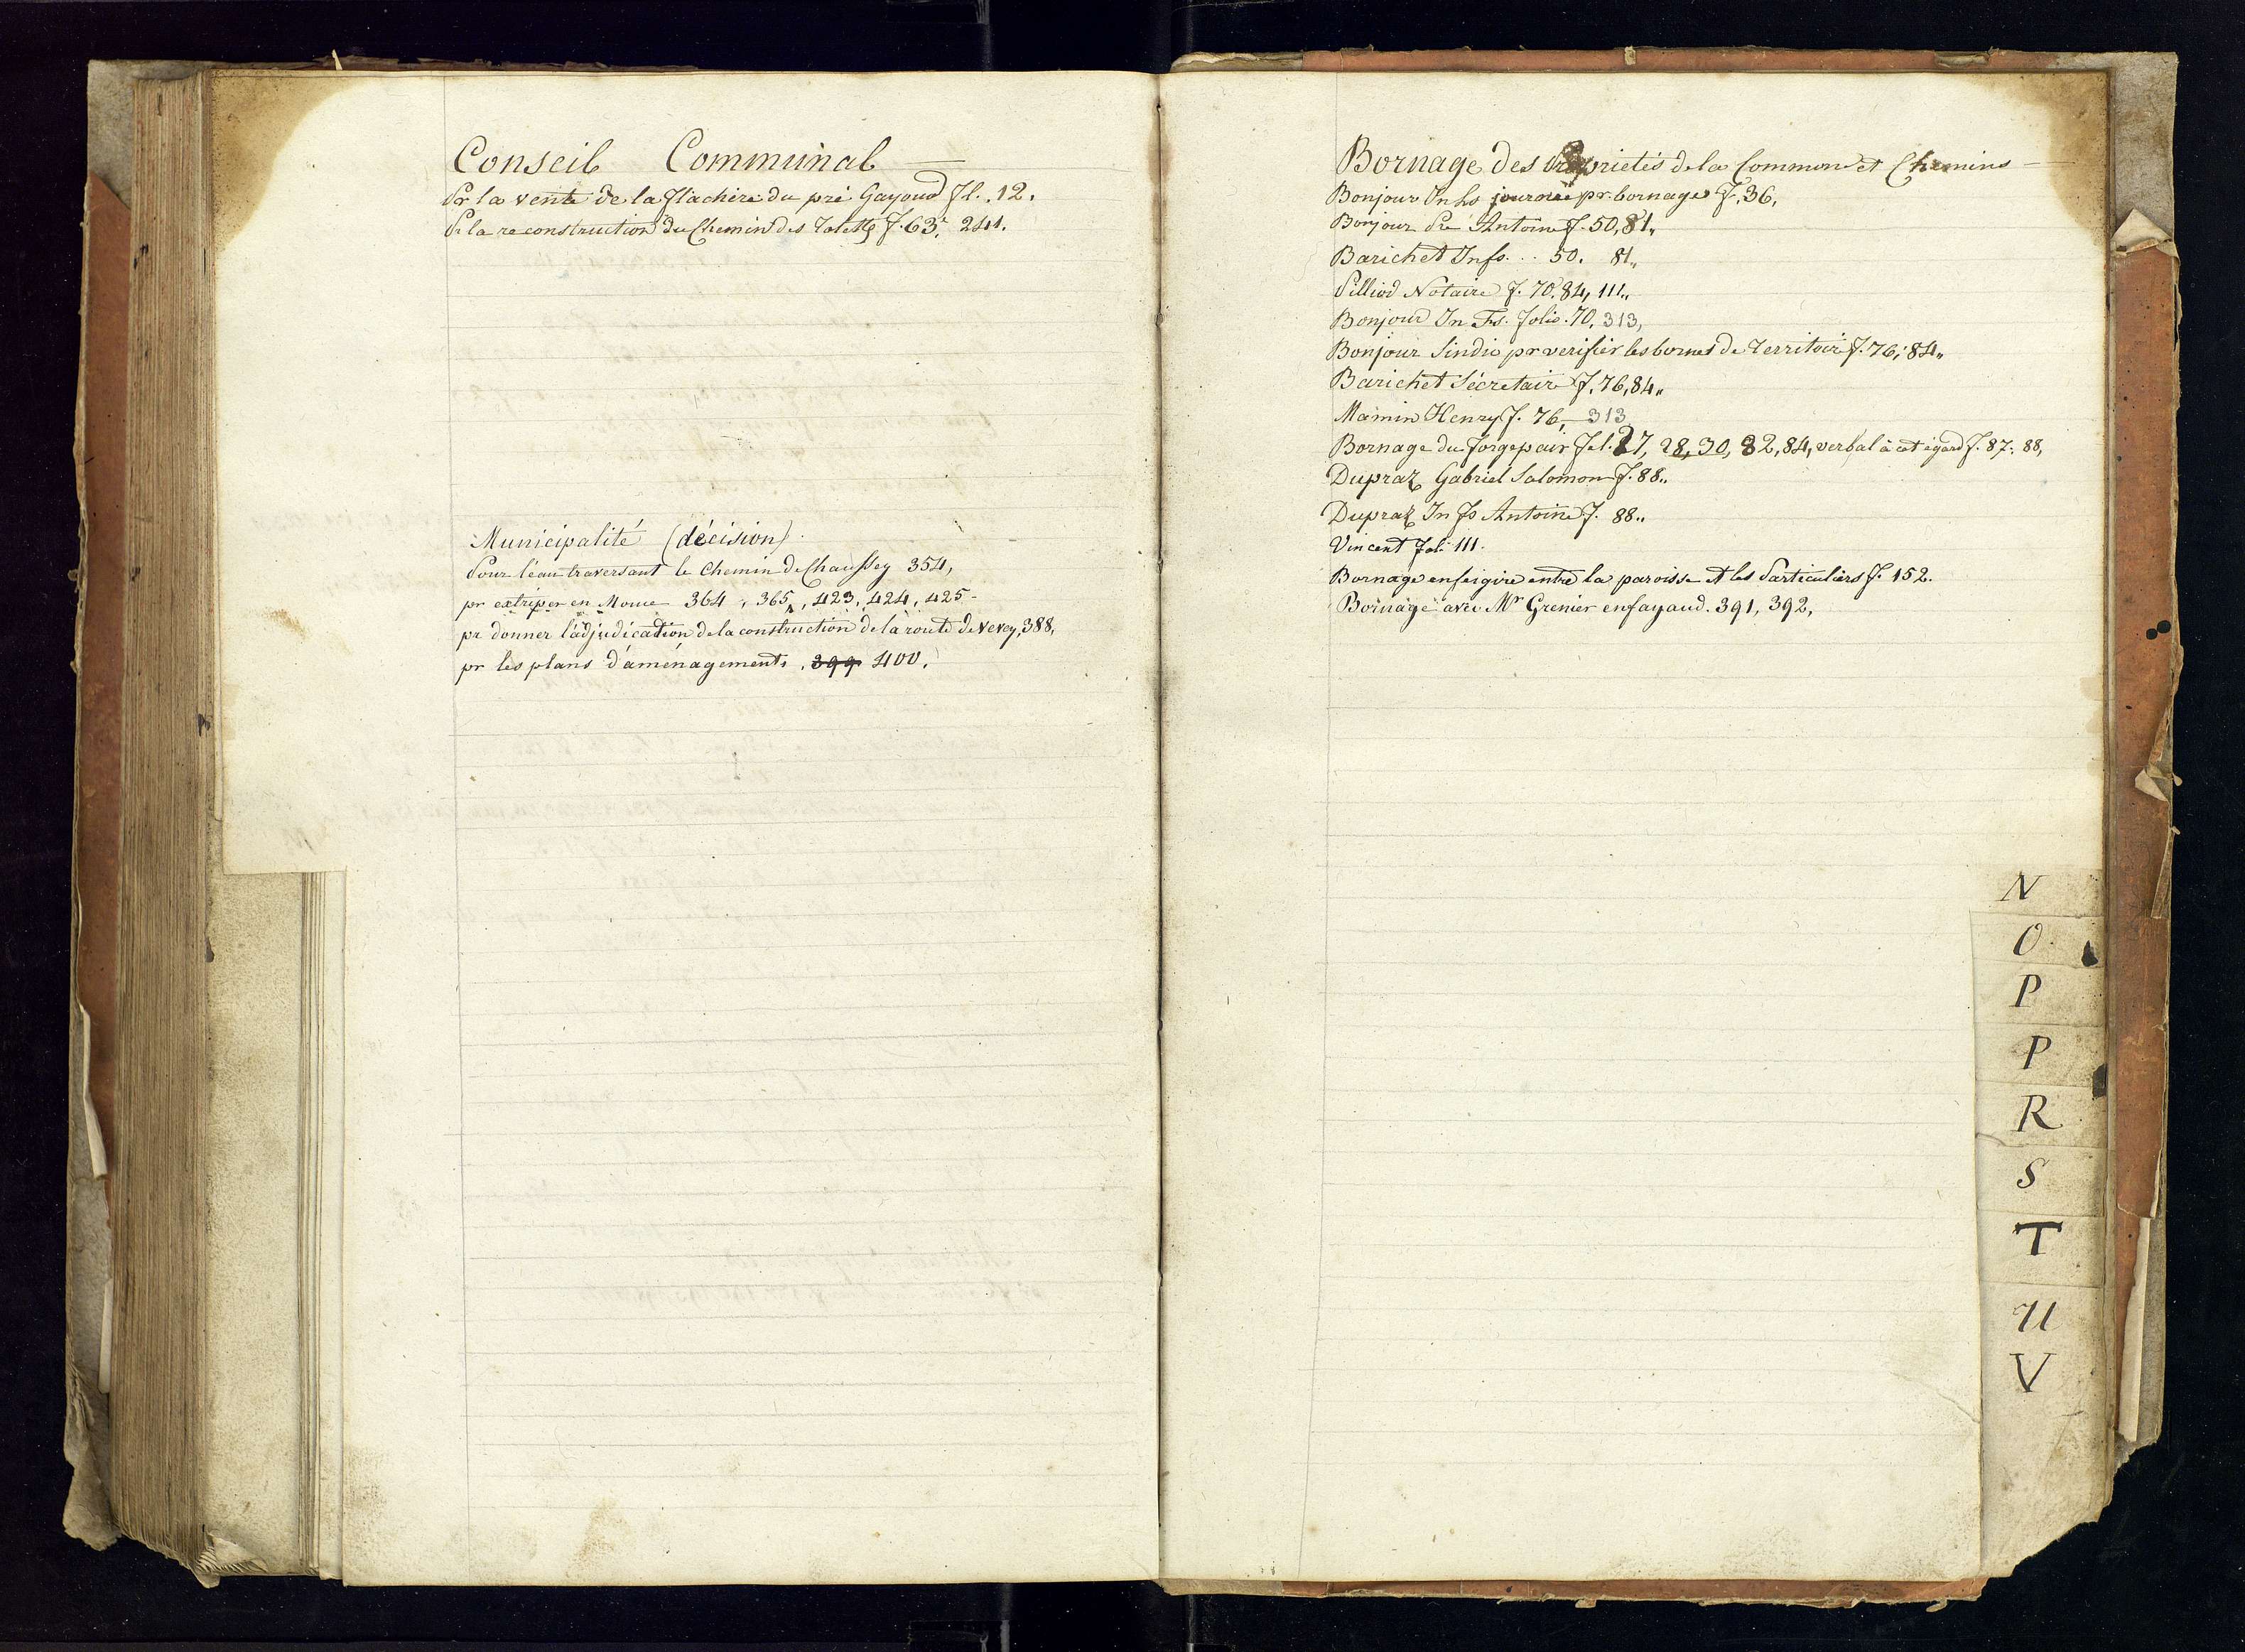 Conseil Communal
Pr la vente de la flachère du pré Gayoud fl. 12.
Pr la reconstruction du Chemin des f. 63, 241.
Municipalité (décision).
Pour l'eau traversant le chemin de Chaussey 354,
pr extriper en Moure 364, 365, 423, 424, 425
pr donner l'adjudication de la construction de la route de Vevey, 388,
pr les plans d'aménagements, 399 400.
Bornage des Proprietés de la Commone et Chemins
Bonjour journée pr. bornage f. 36,
Bonjour Pre Antoine f. 50, 81,,
Barichet Jn fs. .. 50. 81,,
Pilliod Notaire f. 70, 84, 111,,
Bonjour Jn Fs. folio. 70, 313,
Bonjour Sindic pr verifier les bornes de Territoire f. 76, 84,,
Barichet Sécretaire f. 76, 84,,
Mamin Henry f. 76, 313
Bornage du forgepair fol. 27, 28, 30, 82, 84, verbal à cet égard f. 87. 88,
Dupraz Gabriel Salomon f. 88,,
Dupraz Jn Fs Antoine f. 88,,
Vincent fol. 111.
Bornage enfeigire entre la paroisse et les Particuliers f. 152.
Bornage avec Mr Grenier enfayaud. 391, 392,
N
O.
P
P
R
S
T
U
V